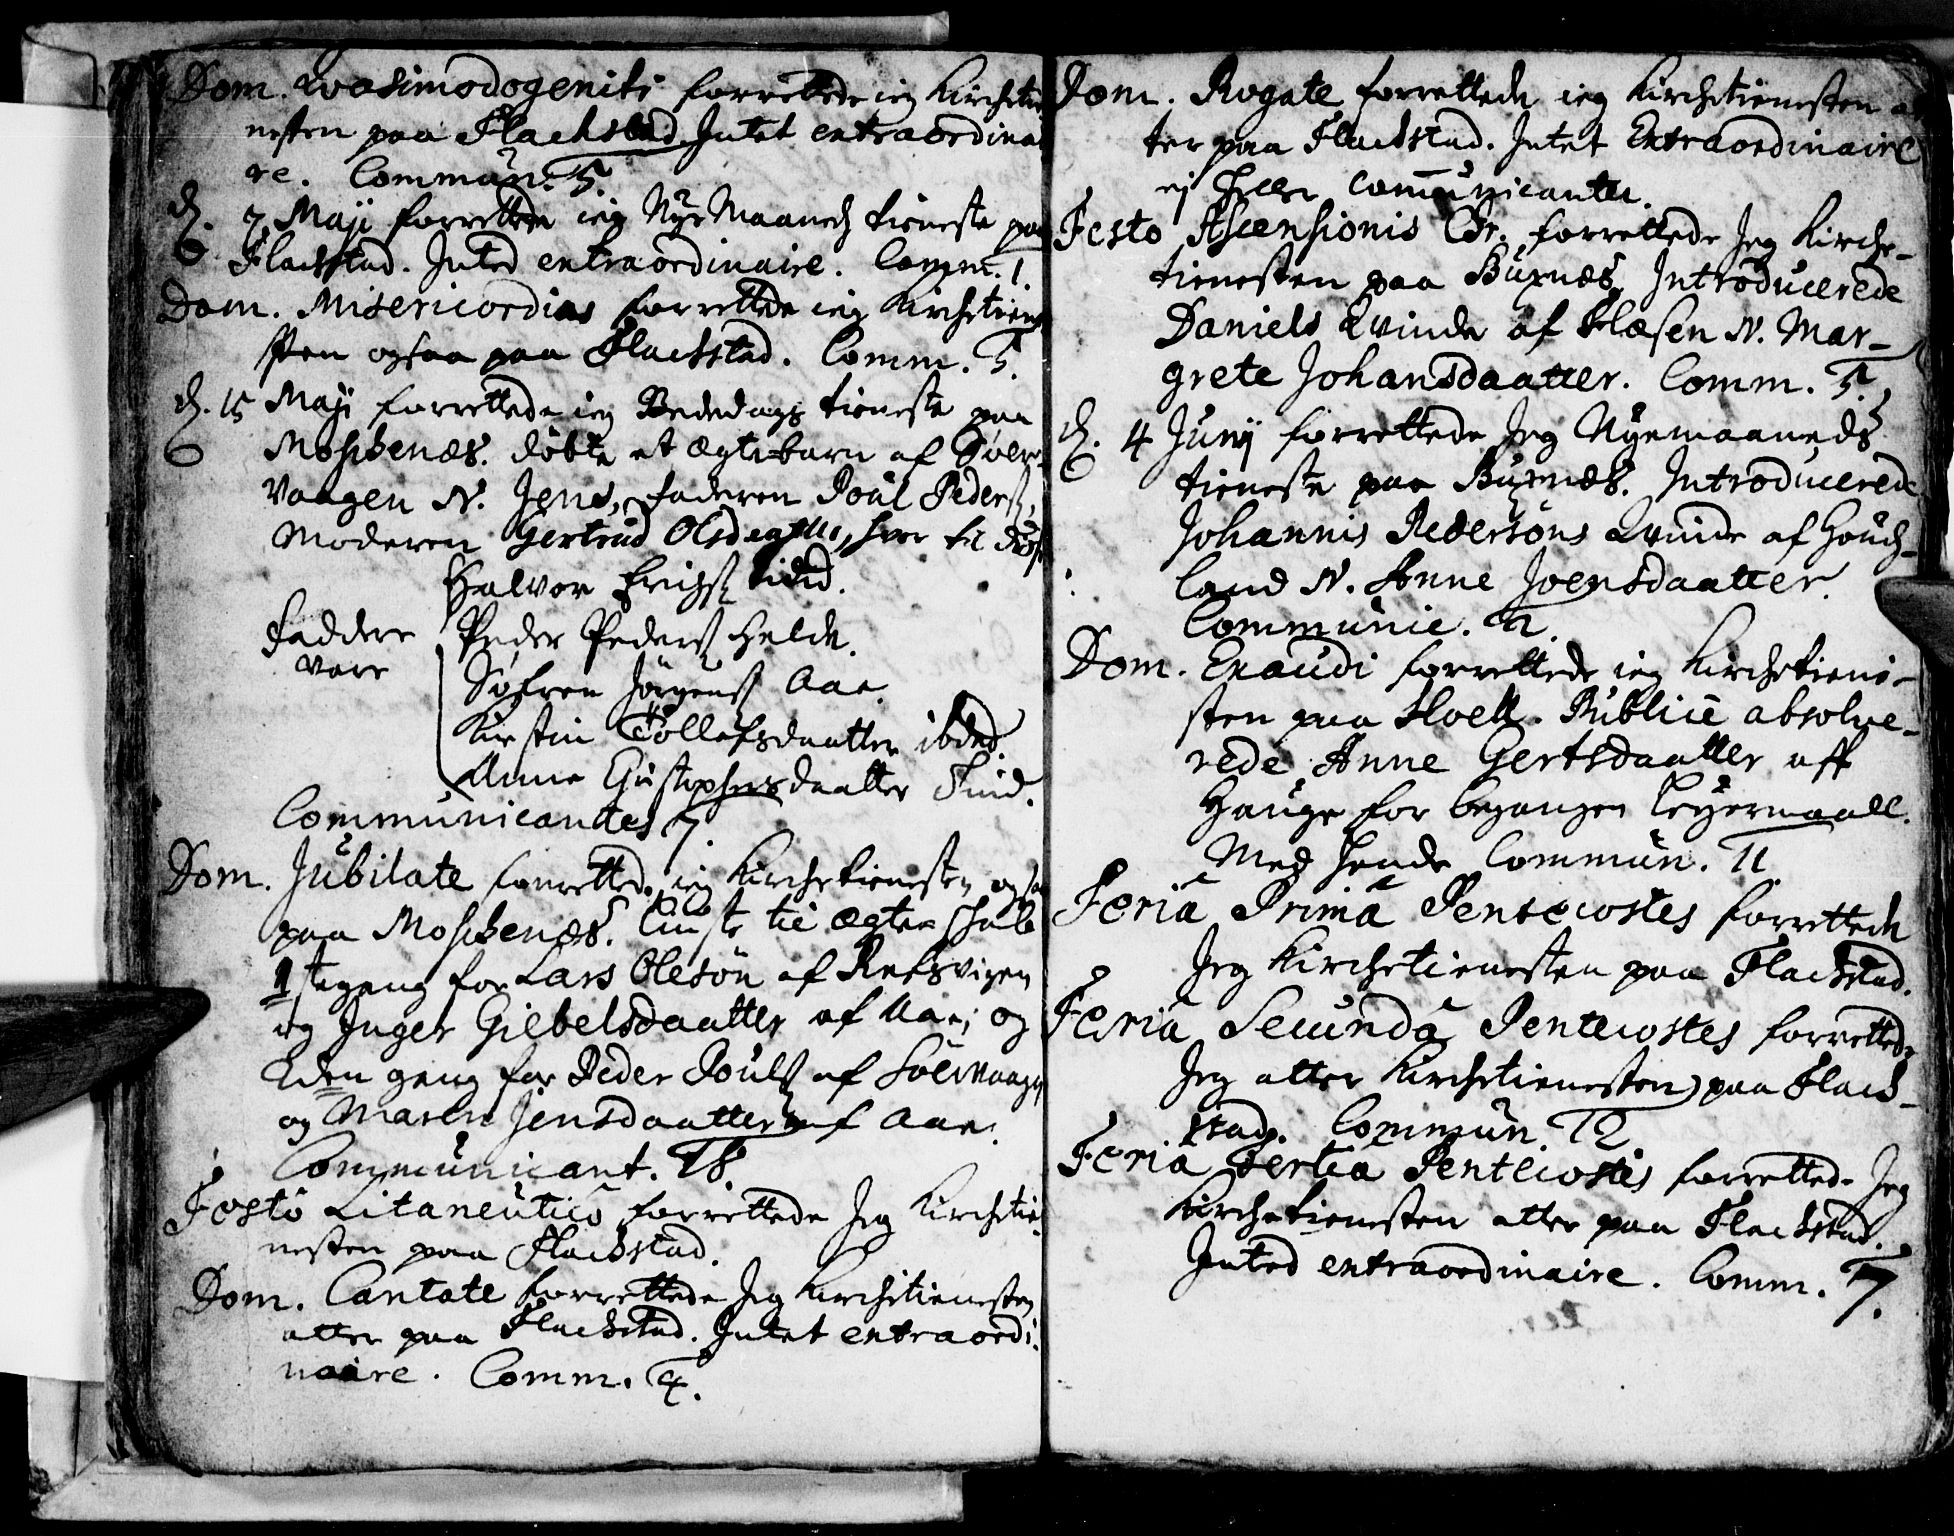 Dom. Qvasimodogeniti forrettede ieg Kirchetie
nesten paa Flachstad Intet extraordinai
re. Commun. 5.
d. 7 Maji forrettede ieg NyeMaaneds tieneste paa
Flachstad. Inted extraordinaire. Comm. 1.
Dom. Misericordias forrettede ieg Kirchetiene
sten ogsaa paa Flachstad. Comm. 5.
d. 15 Maji forrettede ieg Bededags tieneste paa
Moschenæs. døbte et ægte barn af Sølr
vaagen N. Jens, faderen Poul Peders.
Moderen Gertrud Olsdaatter, hver til
Halvor Erichs. ibid.
Faddere Peder Peders. Helde.
vare Søfren Jørgens. Aae.
Kirstin Tollefsdaatter ibid.
Anne Gustaphsdaatter Sund.
Communicantes 7.
Dom. Jubilate forrettede ieg Kirchetienesten ogsaa
paa Moschenæs. Liuste til ægteschab
1ste gang for Lars Olesøn af Refsvigen
og Inger Giebelsdaatter af Aae; og
2den gang for Peder Pouls. af Sølrvaagen
og Maren Jensdaatter af Aae.
Communicant. 18.
Festo Litaneutico forrettede Jeg Kirchetie
nesten paa Flachstad.
Dom. Cantate forrettede Jeg Kirchetienesten
atter paa Flachstad. Intet extraordi:
naire. Comm. 4.
Dom. Rogate forrettede ieg Kirchetienesten at
ter paa Flachstad. Intet Extraordinaire
ej heller Communicanter.
Festo Ascensionis Chr. forrettede Jeg Kirche-
tienesten paa Buxnæs, Introducerede
Daniels Qvinde af Flæsen N. Mar-
grete Johansdaatter. Comm. 5.
d. 4 Junij forrettede Jeg Nyemaaneds
tieneste paa Buxnæs. Introducerede
Johannis Pedersøns Qvinde af Houch-
land N. Anne Joensdaatter.
Communic. 2.
Dom. Exaudi forrettede ieg Kirchetiene-
sten paa Hoell. Publice absolve-
rede Anne Gertsdaatter aff
Hauge for begangen Leyermaall.
Med hende Commun. 11
Feria Prima Pentecostes forrettede
Jeg Kirchetienesten paa Flachstad.
Feria Secunda Pentecostes forrettede
Jeg atter Kirchetienesten paa Flach-
stad. Commun. 12
Feria Tertia Pentecostes forrettede Jeg
Kirchetienesten atter paa Flachstad.
Inted extraordinaire. Comm. 17.